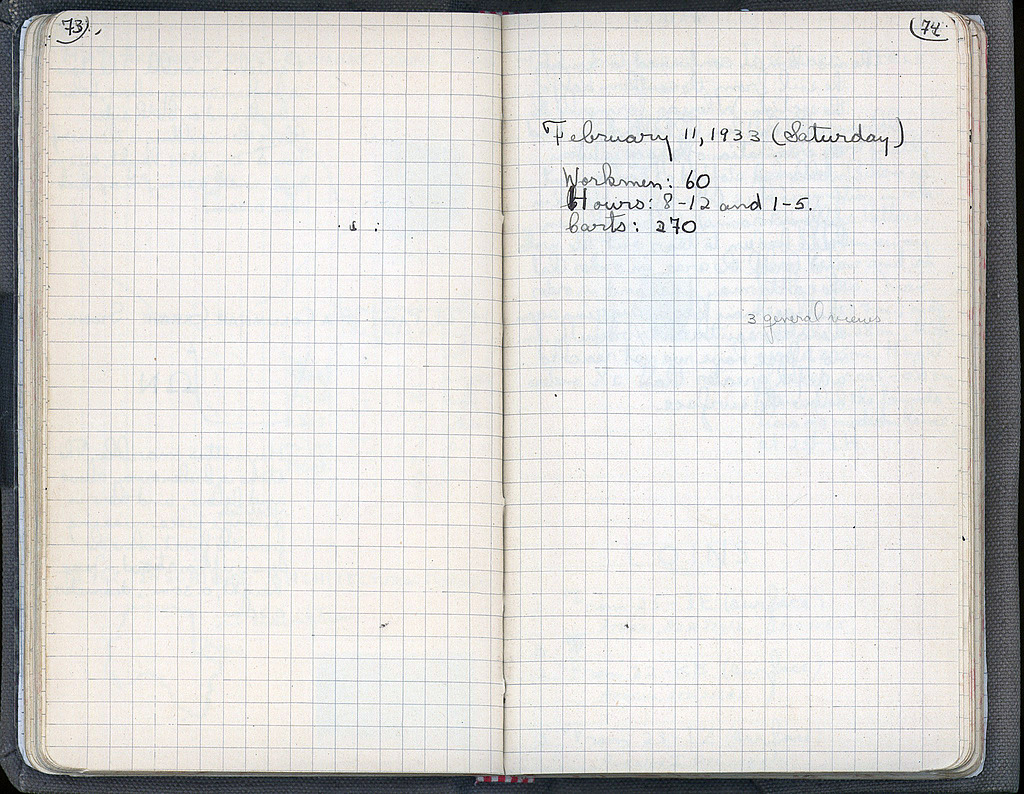 73
74
February 11, 1933 (Saturday)
Workmen: 60
Hours: 8-12 and 1-5.
Carts: 270
3 general views